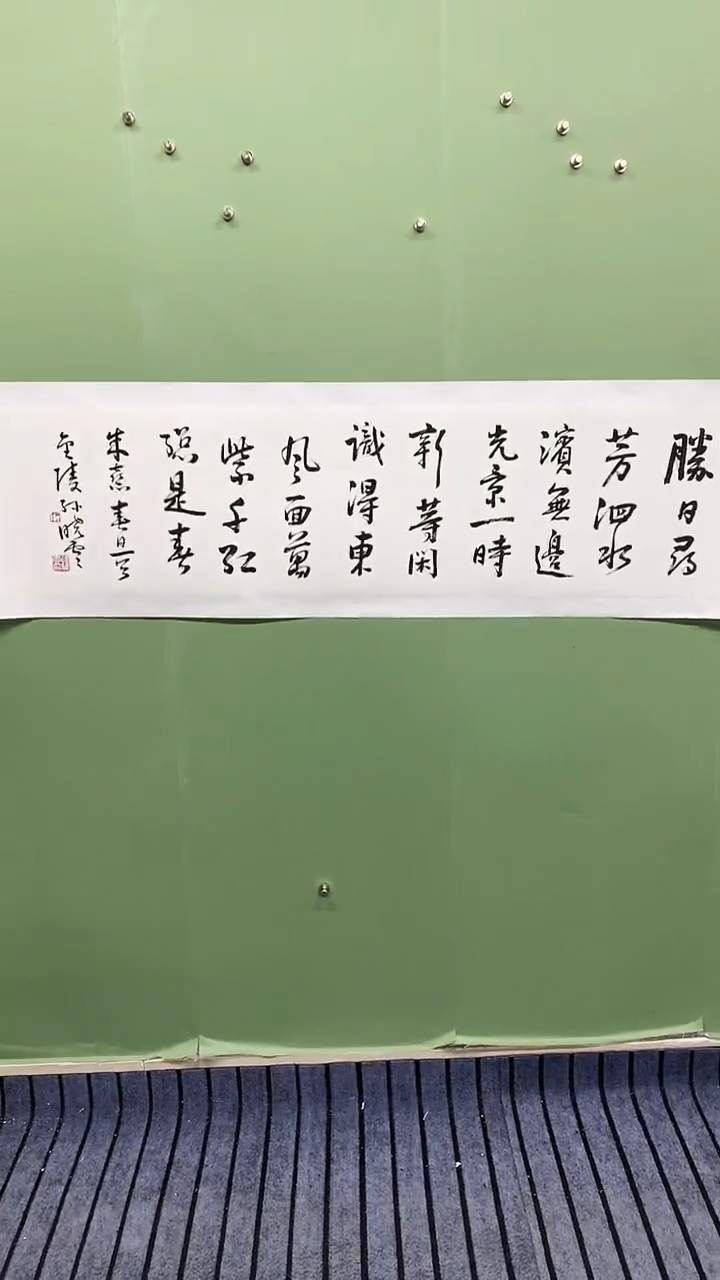 勝日尋
芳泗水
濱無邊
光景一時
新等闲
識得東
風面萬
紫千紅
總是春
朱熹春日一首
金陵孙晓雲